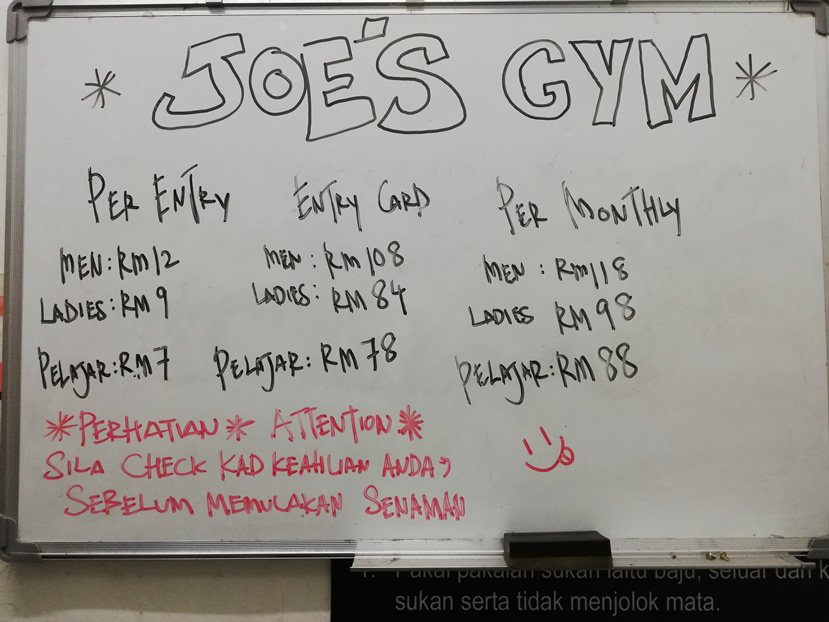 * JOE'S GYM *
PER ENTRY
MEN: RM12
LADIES: RM 9
PELAJAR: RM 7
ENTRY CARD
MEN : RM 108
LADIES: RM 84
PELAJAR: RM 78
PER MONTHLY
MEN : RM118
LADIES RM 98
PELAJAR: RM 88
*PERHATIAN* ATTENTION*
SILA CHECK KAD KEAHLIAN ANDA :)
SEBELUM MEMULAKAN SENAMAN
1. Pakai pakaian sukan iaitu baju, seluar dan k
sukan serta tidak menjolok mata.